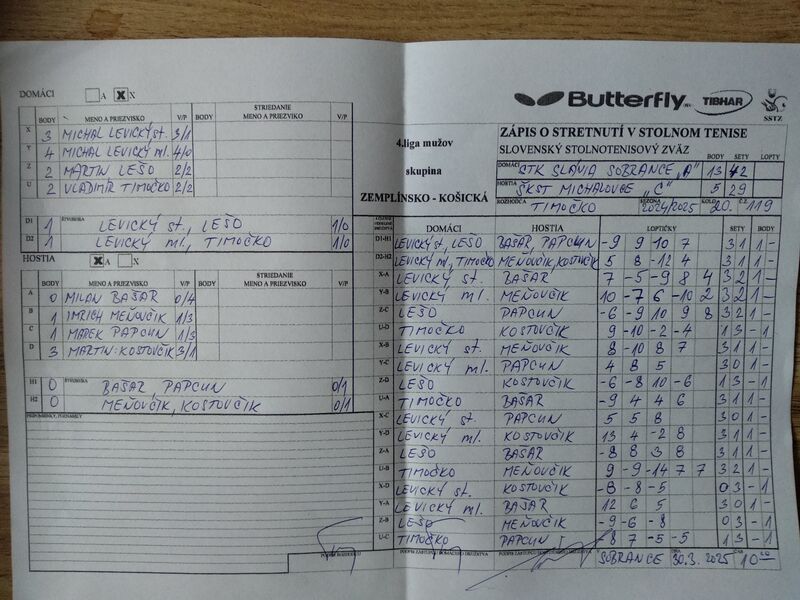 DOMÁCI A X X
BODY MENO A PRIEZVISKO V/P BODY STRIEDANIE MENO A PRIEZVIKO V/P
X 3 MICHAL LEVICKÝ st. 3/1
Y 4 MICHAL LEVICKÝ ml. 4/0
Z 2 MARTIN LEŠO 2/2
U 2 VLADIMÍR TIMOČKO 2/2
D1 1 ŠTVORHRA LEVICKÝ st., LEŠO 1/0
D2 1 LEVICKÝ ml., TIMOČKO 1/0
HOSTIA A X X
BODY MENO A PRIEZVISKO V/P BODY STRIEDANIE MENO A PRIEZVISKO V/P
A 0 MILAN BAŠAR 0/4
B 1 IMRICH MEŇOVČIK 1/3
C 1 MAREK PAPCUN 1/3
D 3 MARTIN KOSTOVČIK 3/1
H1 0 ŠTVORHRA BAŠAR, PAPCUN 0/1
H2 0 MEŇOVČIK, KOSTOVČIK 0/1
PRIPOMIENKY, POZNÁMKY
4.liga mužov
skupina
ZEMPLÍNSKO - KOŠICKÁ
Butterfly TIBHAR SSTZ
ZÁPIS O STRETNUTÍ V STOLNOM TENISE
SLOVENSKÝ STOLNOTENISOVÝ ZVÄZ
BODY SETY LOPTY
DOMÁCI STK SLÁVIA SOBRANCE "A" 13 42
HOSTIA ŠKST MICHALOVCE "C" 5 29
ROZHODCA TIMOČKO SEZÓNA 2024/2025 KOLO 20. Č.Z. 119
DOMÁCI HOSTIA LOPTIČKY SETY BODY
D1-H1 LEVICKÝ st, LEŠO BAŠAR, PAPCUN -9 9 10 7 3 1 1 -
D2-H2 LEVICKÝ ml, TIMOČKO MEŇOVČIK, KOSTOVČIK 5 8 -12 4 3 1 1 -
X-A LEVICKÝ st. BAŠAR 7 -5 -9 8 4 3 2 1 -
Y-B LEVICKÝ ml. MEŇOVČIK 10 -7 6 -10 2 3 2 1 -
Z-C LEŠO PAPCUN -6 -9 10 9 8 3 2 1 -
U-D TIMOČKO KOSTOVČIK 9 -10 -2 -4 1 3 - 1
X-B LEVICKÝ st. MEŇOVČIK 8 -10 8 7 3 1 1 -
Y-C LEVICKÝ ml. PAPCUN 4 8 5 3 0 1 -
Z-D LEŠO KOSTOVČIK -6 -8 10 -6 1 3 - 1
U-A TIMOČKO BAŠAR -9 4 4 6 3 1 1 -
X-C LEVICKÝ st. PAPCUN 5 5 8 3 0 1 -
Y-D LEVICKÝ ml. KOSTOVČIK 13 4 -2 8 3 1 1 -
Z-A LEŠO BAŠAR -8 8 3 8 3 1 1 -
U-B TIMOČKO MEŇOVČIK 9 -9 -14 7 7 3 2 1 -
X-D LEVICKÝ st. KOSTOVČIK -8 -8 -5 0 3 - 1
Y-A LEVICKÝ ml. BAŠAR 12 6 5 3 0 1 -
Z-B LEŠO MEŇOVČIK -9 -6 -8 0 3 - 1
U-C TIMOČKO PAPCUN 8 7 -5 -5 1 3 - 1
PODPIS ROZHODCU PODPIS ZÁSTUPCU DOMÁCEHO DRUŽSTVA V SOBRANCE DŇA 30.3.2025 ČAS 10 00